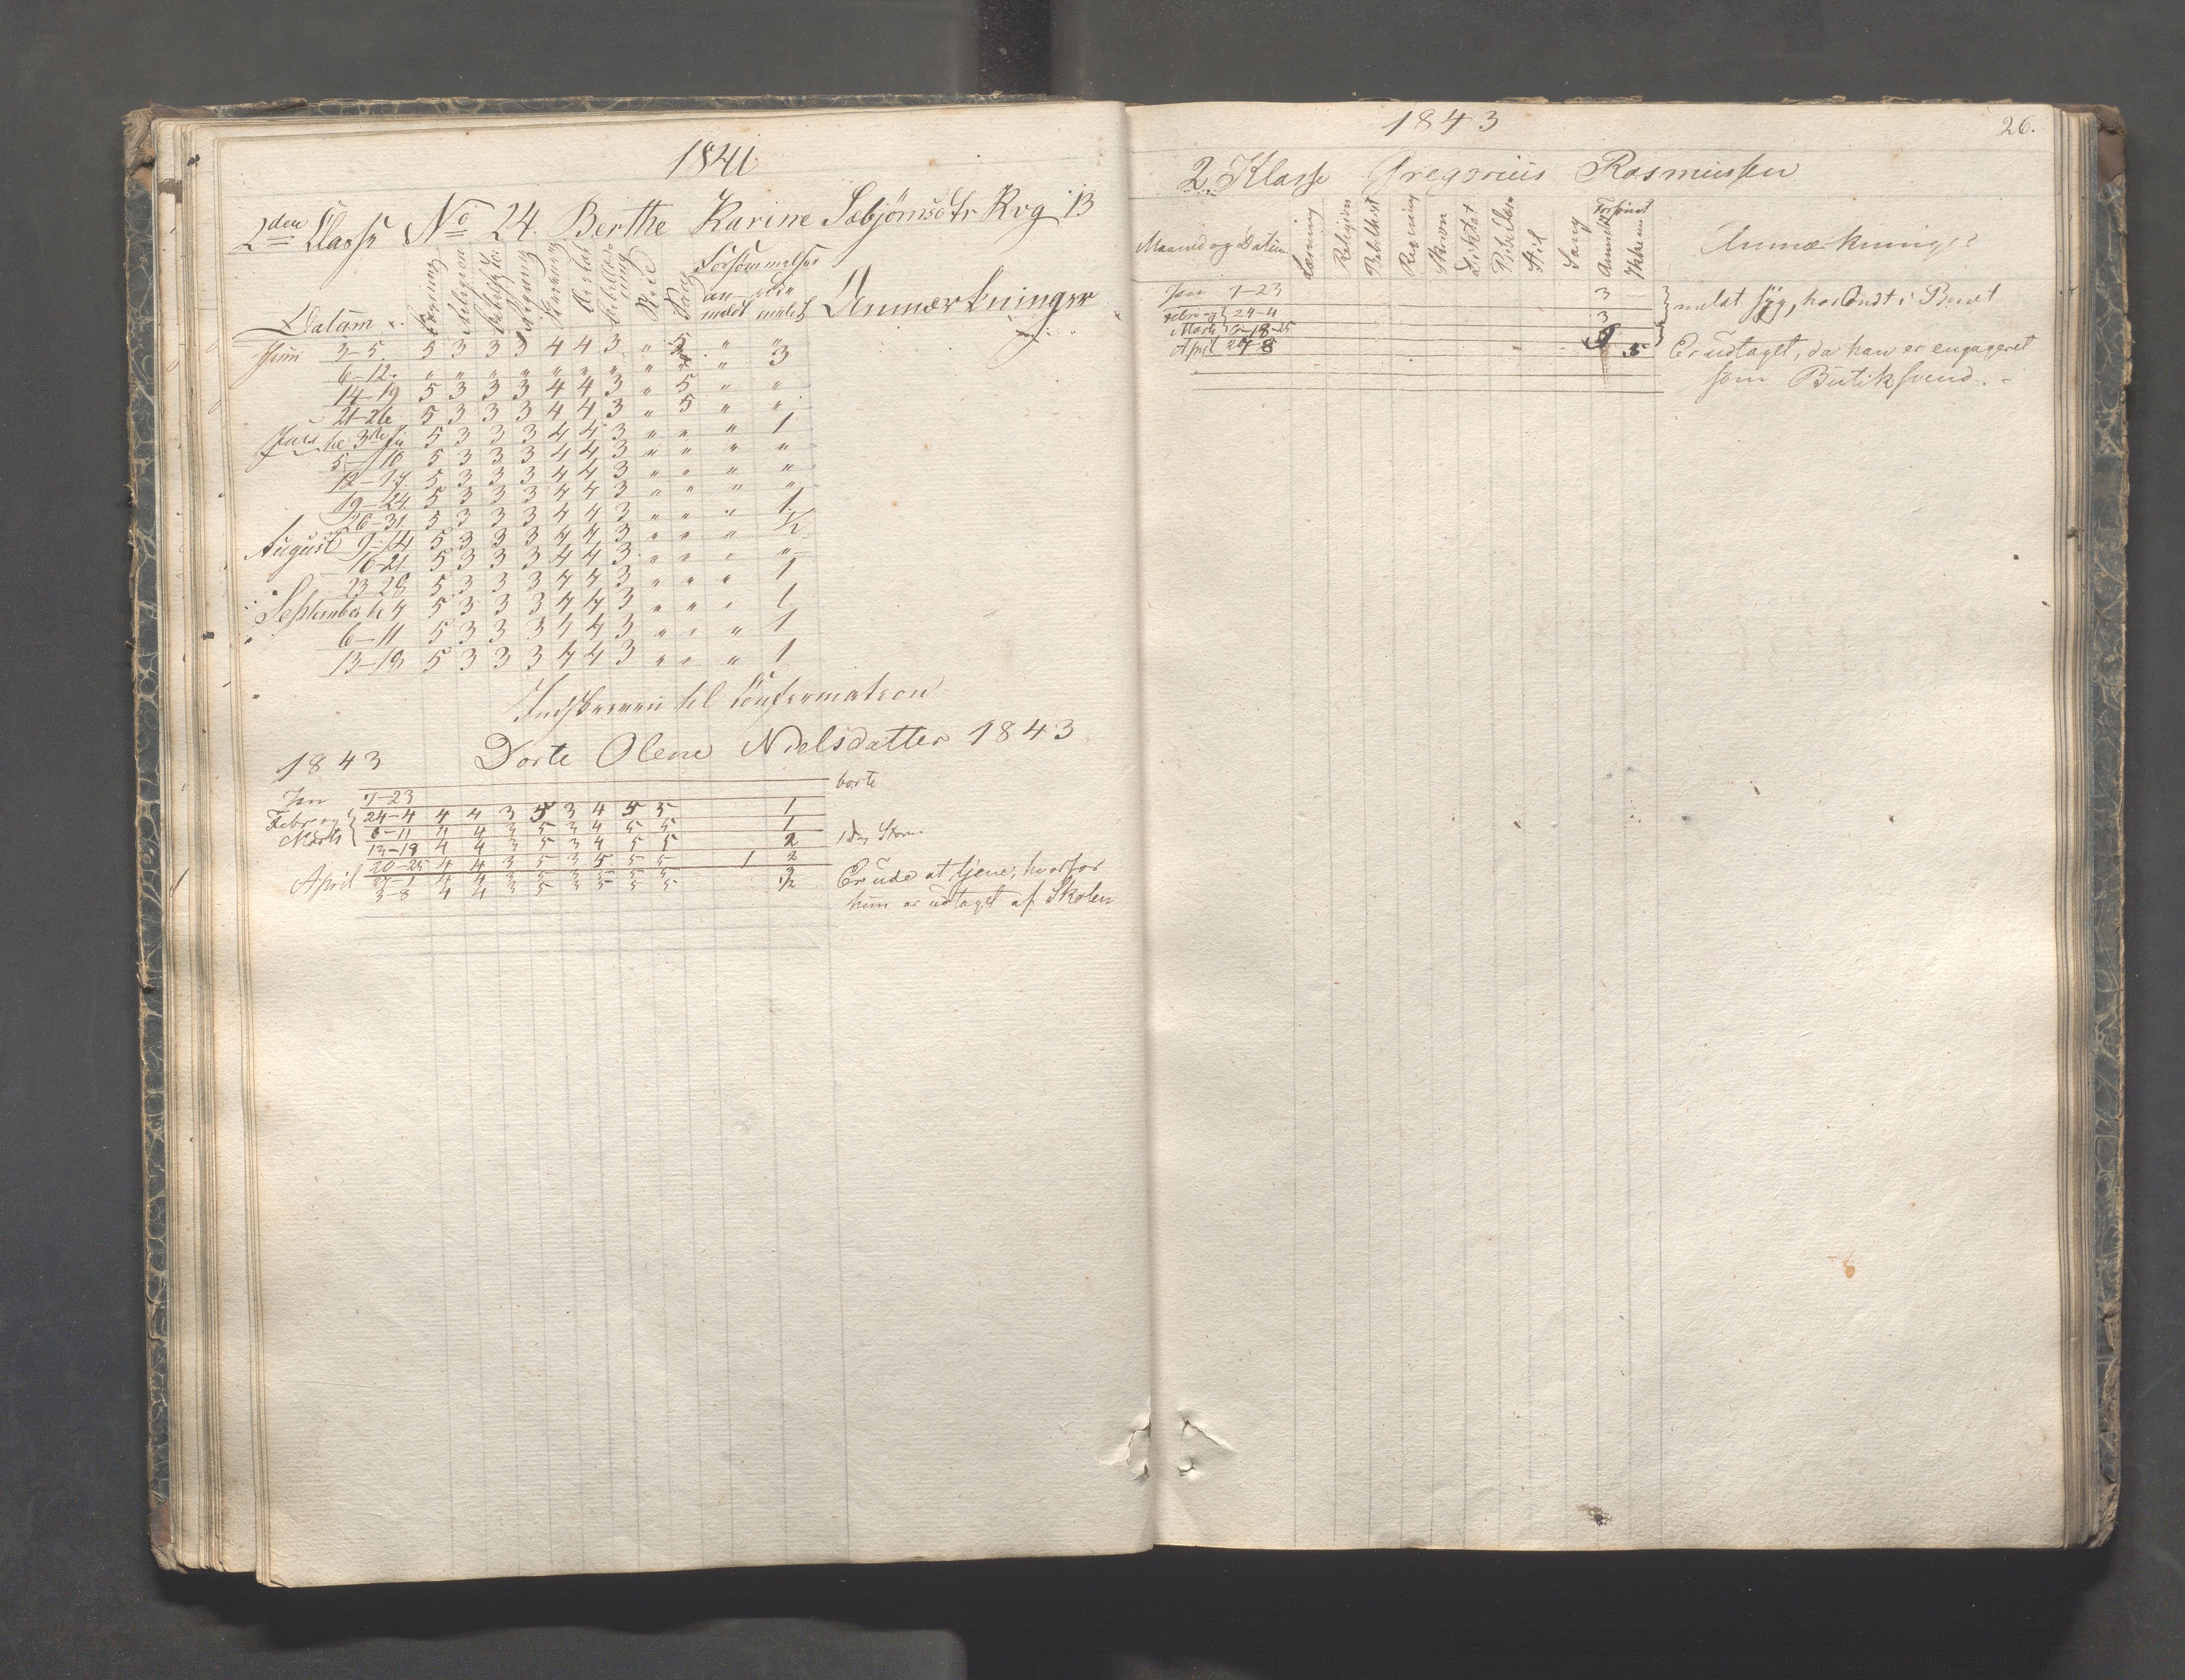 1841
2den Classe No 24. Berthe Karine Sebjörnsdtr Kvg 13
Datum Læsning Religion Bibelhisto. Regning Skrivning Dictat Bibellæsning Stiil Sang Forsømmelser anmeldt ikke meldt Anmærkninger
Juni 3-5. 5 3 3 3 4 4 3 " 5 " "
6-12. " " " " " " " " " " 3
14-19 5 3 3 3 4 4 3 " 5 " "
21-26 5 3 3 3 4 4 3 " 5 " "
Juli te 3die Ju 5 3 3 3 4 4 3 " " " 1
5-10 5 3 3 3 4 4 3 " " " "
12-17. 5 3 3 3 4 4 3 " " " "
19-24. 5 3 3 3 4 4 3 " " " "
26-31. 5 3 3 3 4 4 3 " " " 1
August 9-14 5 3 3 3 4 4 3 " " " 1/2
16-21 5 3 3 3 4 4 3 " " " "
23-28 5 3 3 3 4 4 3 " " " 1
September te 4 5 3 3 3 4 4 3 " " " 1
6-11 5 3 3 3 4 4 3 " " " 1
13-18 5 3 3 3 4 4 3 " " " 1
Indskreven til Confirmation
1843 Dorte Olene Nielsdatter 1843
Jan 7-23 borte
Febr og 24-4 4 4 3 5 3 4 5 5 1
Marts 6-11 4 4 3 5 3 4 5 5 1
13-18 4 4 3 5 3 4 5 5 2 1 dag
20-25 4 4 3 5 3 5 5 5 1 2
April 27-1 4 4 3 5 3 5 5 5 3 Er ude at tjene, hvorfor
3-8 4 4 3 5 3 5 5 5 1/2 hun er udtaget af Skolen
1843 26.
2. Klasse Gregorius Rasmussen
Maaned og Datum Læsning Religion Bibelhist Regning Skrivn Diktat Bibellæsn Stil Sang Forsømt Anmeldt Ikke an Anmærkninger
Jan 7-23 3 meldt syg, har Ondt i Benet
Febr og 24-4 3
Marts 6-18-25 9
April 27 8 5 Er udtaget, da han er engageret
som Butiksvend.